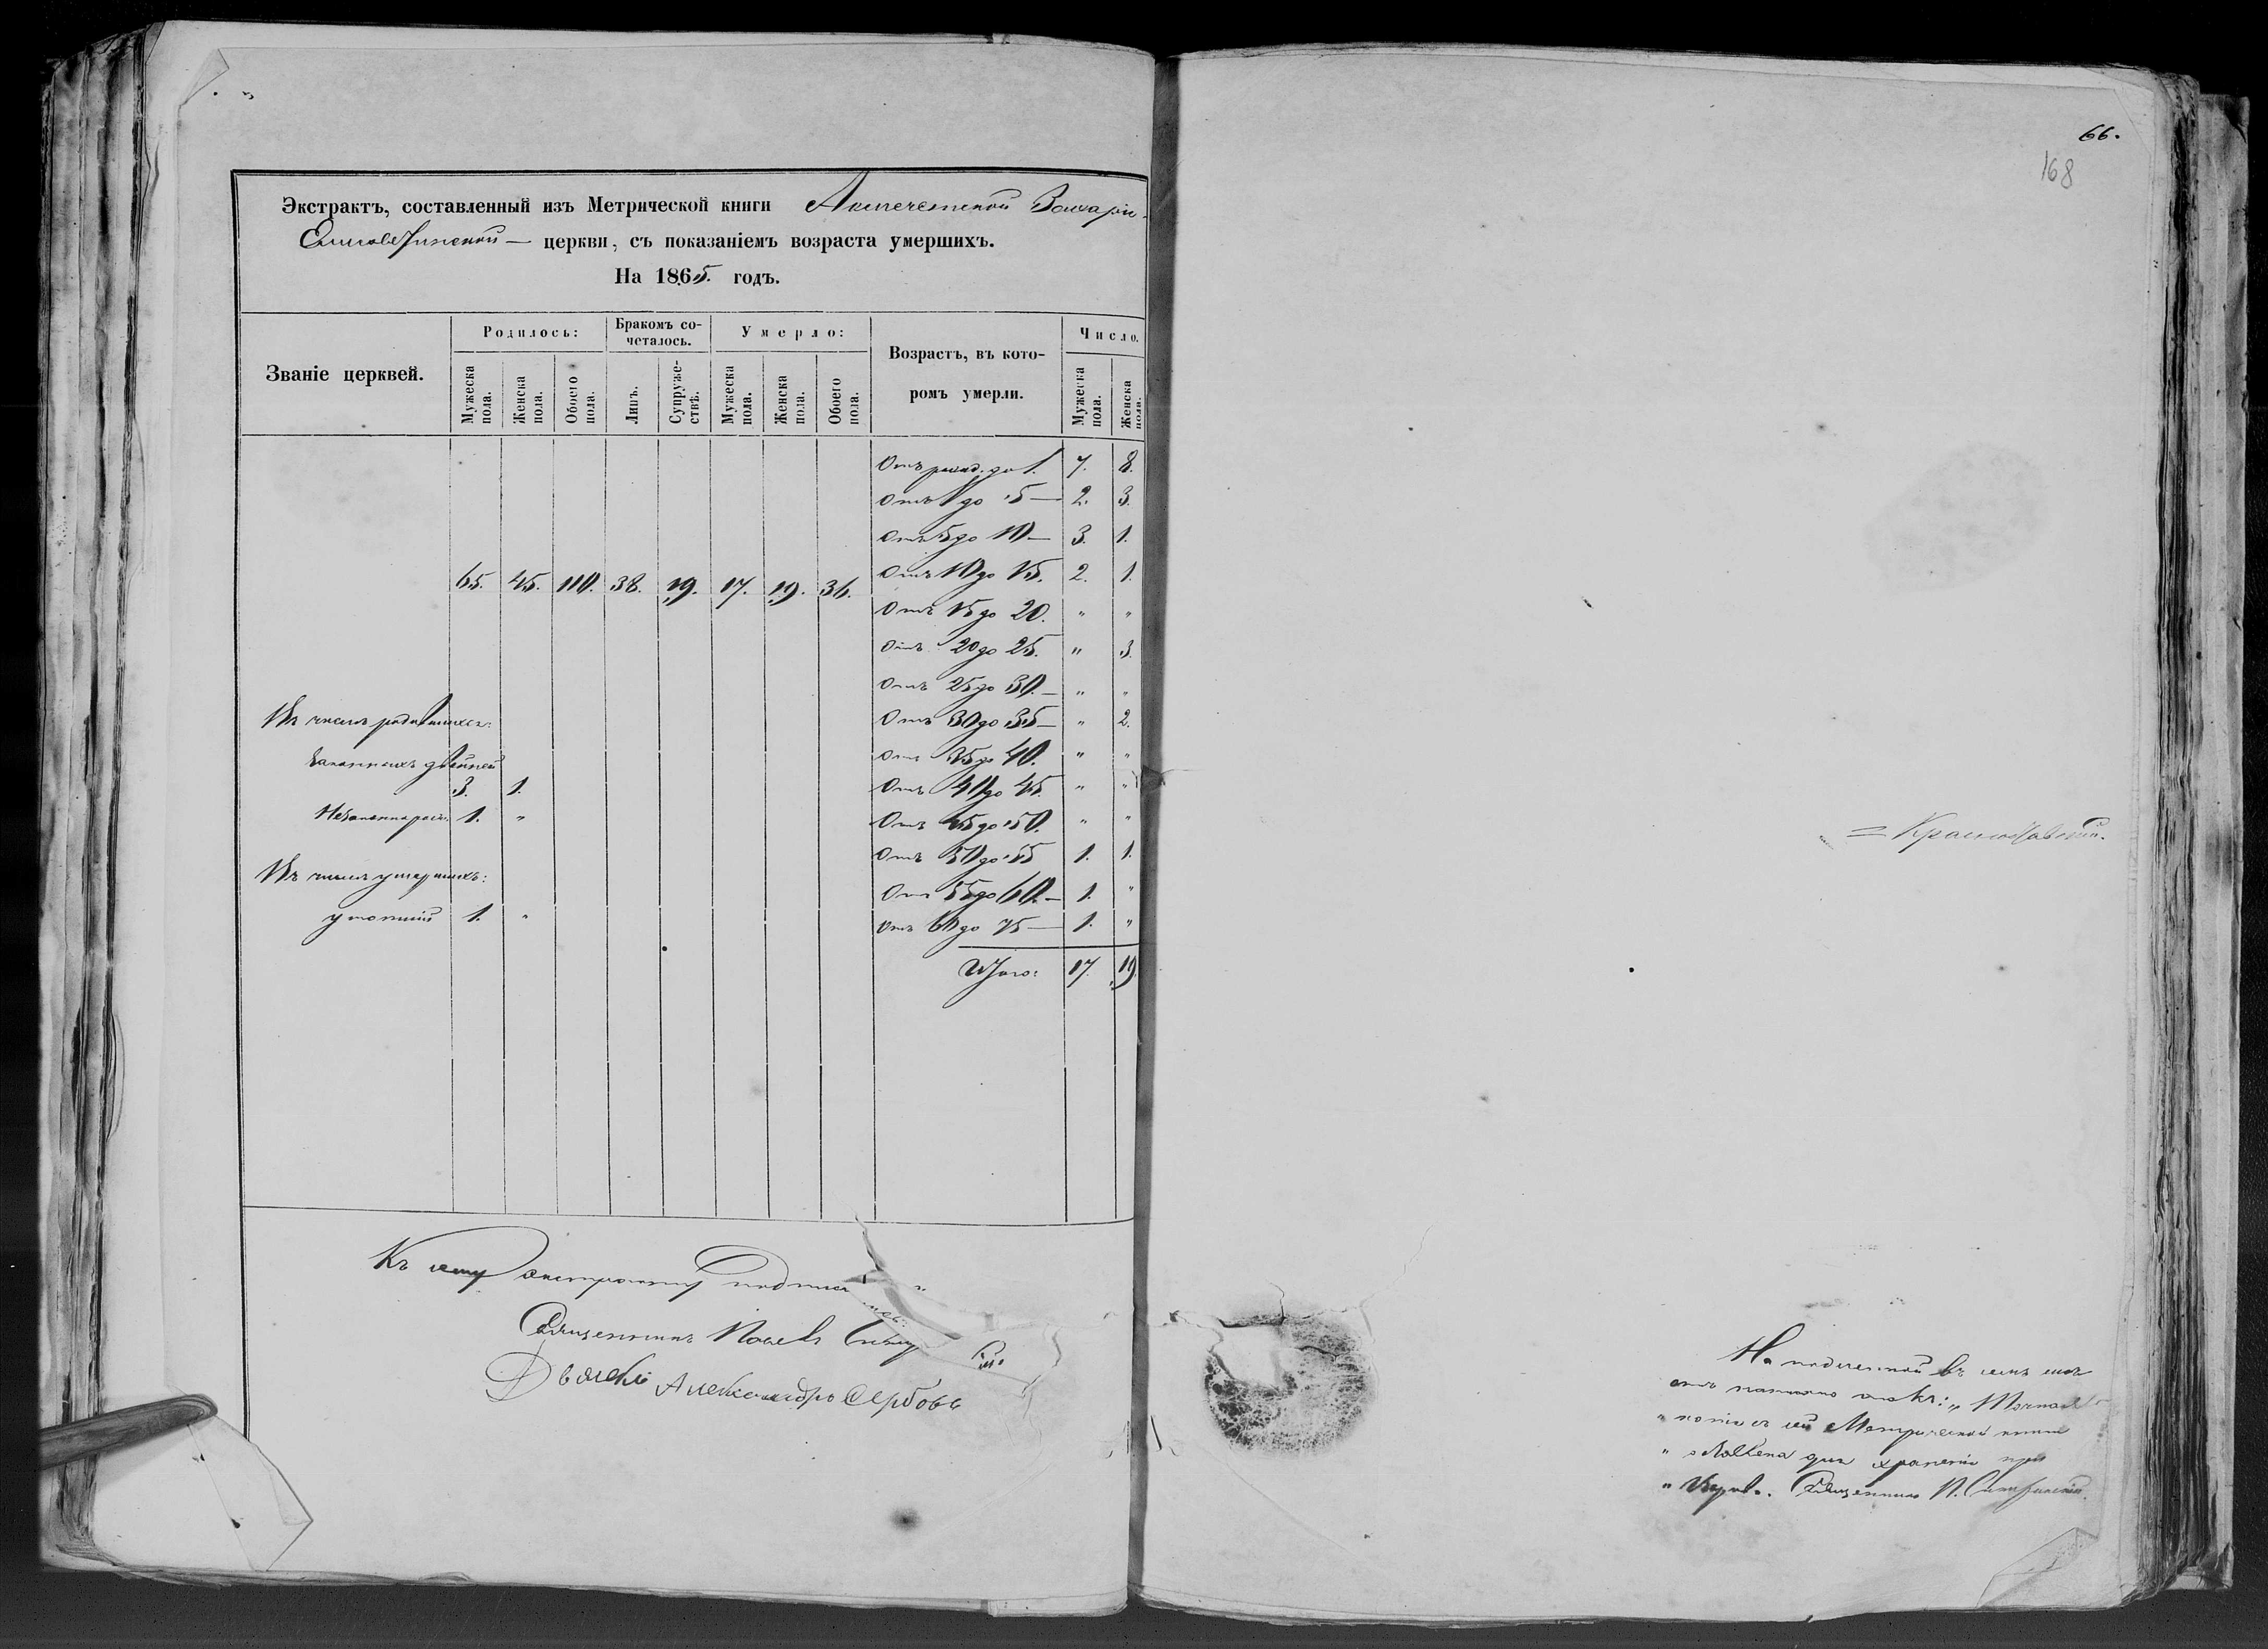 Экстрактъ, составленный изъ Метрической книги Акмечетской Захаріе-
Елисаветинской — церкви, съ показаніемъ возраста умершихъ.
На 1865. годъ.
Званіе церквей.
Родилось:
Мужеска пола.
Женска пола.
Обоего пола.
Бракомъ со-
четалось.
Лицъ.
Супруже-
ствъ.
Умерло:
Мужеска пола.
Женска пола.
Обоего пола.
Возрастъ, въ кото-
ромъ умерли.
Число.
Мужеска пола.
Женска пола.
65. 45. 110. 38. 19. 17. 19. 36.
Отъ рожд. до 1. 7. 8.
Отъ 1 до 5 — 2. 3.
Отъ 5 до 10 — 3. 1.
Отъ 10 до 15. 2. 1.
Отъ 15 до 20. " "
Отъ 20 до 25. " 3.
Отъ 25 до 30. — " "
Отъ 30 до 35 — " 2.
Отъ 35 до 40. " "
Отъ 40 до 45. " "
Отъ 45 до 50. " "
Отъ 50 до 55 1. 1.
Отъ 55 до 60. — 1. "
Отъ 60 до 75 — 1. "
Итого: 17. 19.
Въ числѣ родившихся:
Законныхъ двойней
3. 1.
Незаконнорож. 1. "
Въ числѣ умершихъ:
утопшій 1. "
Къ сему экстракту
Священникъ Павелъ
Дьячекъ Александръ Сербовъ
66.
168
На подлинной въ семъ
написано такъ: „
" копія съ сей Метрической книги
" оставлена для храненія при
" Церкв. Священникъ П.